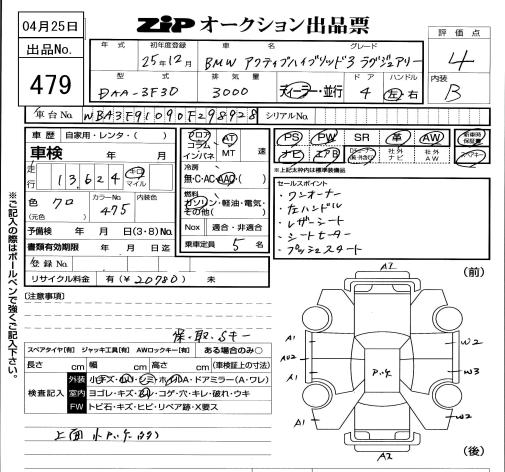 04月25日
ZIP オークション出品票
出品No.
479
年式 初年度登録 車名 グレード
25年12月 BMW アクティブハイブリッド3 ラグジュアリー
評価点
4
型式 排気量 ドア ハンドル
DAA-3F30 3000 ディーラー・並行 4 左 右
内装
B
車台No. WBA3F91090F298928 シリアルNo.
車歴 自家用・レンタ・( )
車検 年 月
走行 13,624 キロ マイル
色 クロ カラーNo. 475 内装色
(元色)
予備検 年 月 日(3・8)No.
書類有効期限 年 月 日迄
登録No.
リサイクル料金 有(¥20780) 未
フロア コラム インパネ AT MT 速
冷房
無・C・AC・AAC・( )
燃料
ガソリン・軽油・電気・その他( )
Nox 適合・非適合
乗車定員 5 名
PS PW SR 革 AW
ナビ エアB 社外ナビ 社外AW
新車時保証書
※上記太枠内は標準装備品
セールスポイント
・ワンオーナー
・左ハンドル
・レザーシート
・シートヒーター
・プッシュスタート
※ご記入の際はボールペンで強くご記入下さい。
【注意事項】
保・取・Sキー
スペアタイヤ[有] ジャッキ工具[有] AWロックキー[有] ある場合のみ○
長さ cm 幅 cm 高さ cm (車検証上の寸法)
検査記入
外装 小キズ・
A・ドアミラー(A・ワレ)
室内 ヨゴレ・キズ・
・コゲ・穴・キレ・破れ・ウキ
FW トビ石・キズ・ヒビ・リペア跡・X要ス
(前)
A2
A1
W2
AU2
P.パケ
A1
W3
A1
W2
A2
(後)